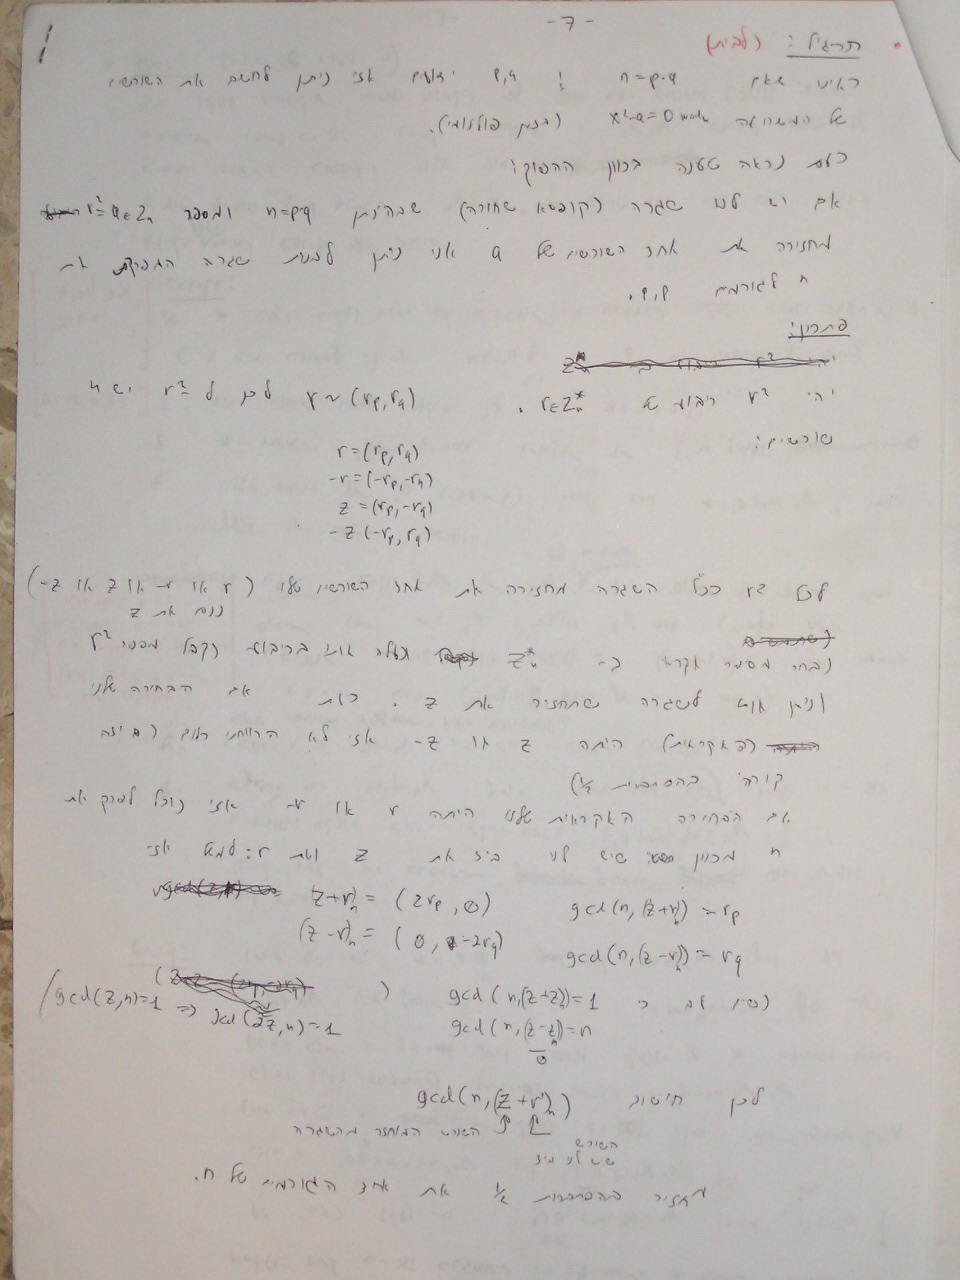 -7-
תרגיל: (לבית)
ראינו שאם n=p·q ו p,q ידועים אזי ניתן לחשב את השורשים
של המשוואה x²-a=0 mod n (בזמן פולינומי).
כעת נראה טענה בכוון ההפוך:
אם יש לנו שגרה (קופסא שחורה) שבהינתן n=p·q ומספר r²=a∈Zn
מחזירה את אחד השורשים של a אזי ניתן לבנות שגרה המפרקת את
n לגורמים p,q.
פתרון:
יהי r² ריבוע של r∈Zn*. r~(rp,rq) לכן ל r² יש 4
שורשים:
r=(rp,rq)
-r=(-rp,-rq)
z=(rp,-rq)
-z(-rp,rq)
לכל r² ככל השגרה מחזירה את אחד השורשים שלו (r או -r או z או -z)
נניח את z
נבחר מספר אקראי ב- Zn* נעלה אותו בריבוע נקבל מספר r²
ניתן אותו לשגרה שתחזיר את z. כעת אם הבחירה שלנו
(האקראית) היתה z או -z אזי לא הרווחתי כלום (וזה
קורה בהסתברות ½)
אם הבחירה האקראית שלנו היתה r או -r אזי נוכל לפרק את
n מכוון שיש לנו ביד את z ואת r: למשל אזי
(z+r)n = (2rp,0) gcd(n,(z+r)n)=rp
(z-r)n = (0,-2rq) gcd(n,(z-r)n)=rq
(שים לב כי gcd(n,(z+z)n)=1 (gcd(z,n)=1 => gcd(2z,n)=1)
gcd(n,(z-z)n)=n
0
לכן חישוב gcd(n,(z+r)n)
השורש המוחזר מהשגרה
השורש
שיש לנו ביד
מחזיר בהסתברות ½ את אחד הגורמים של n.